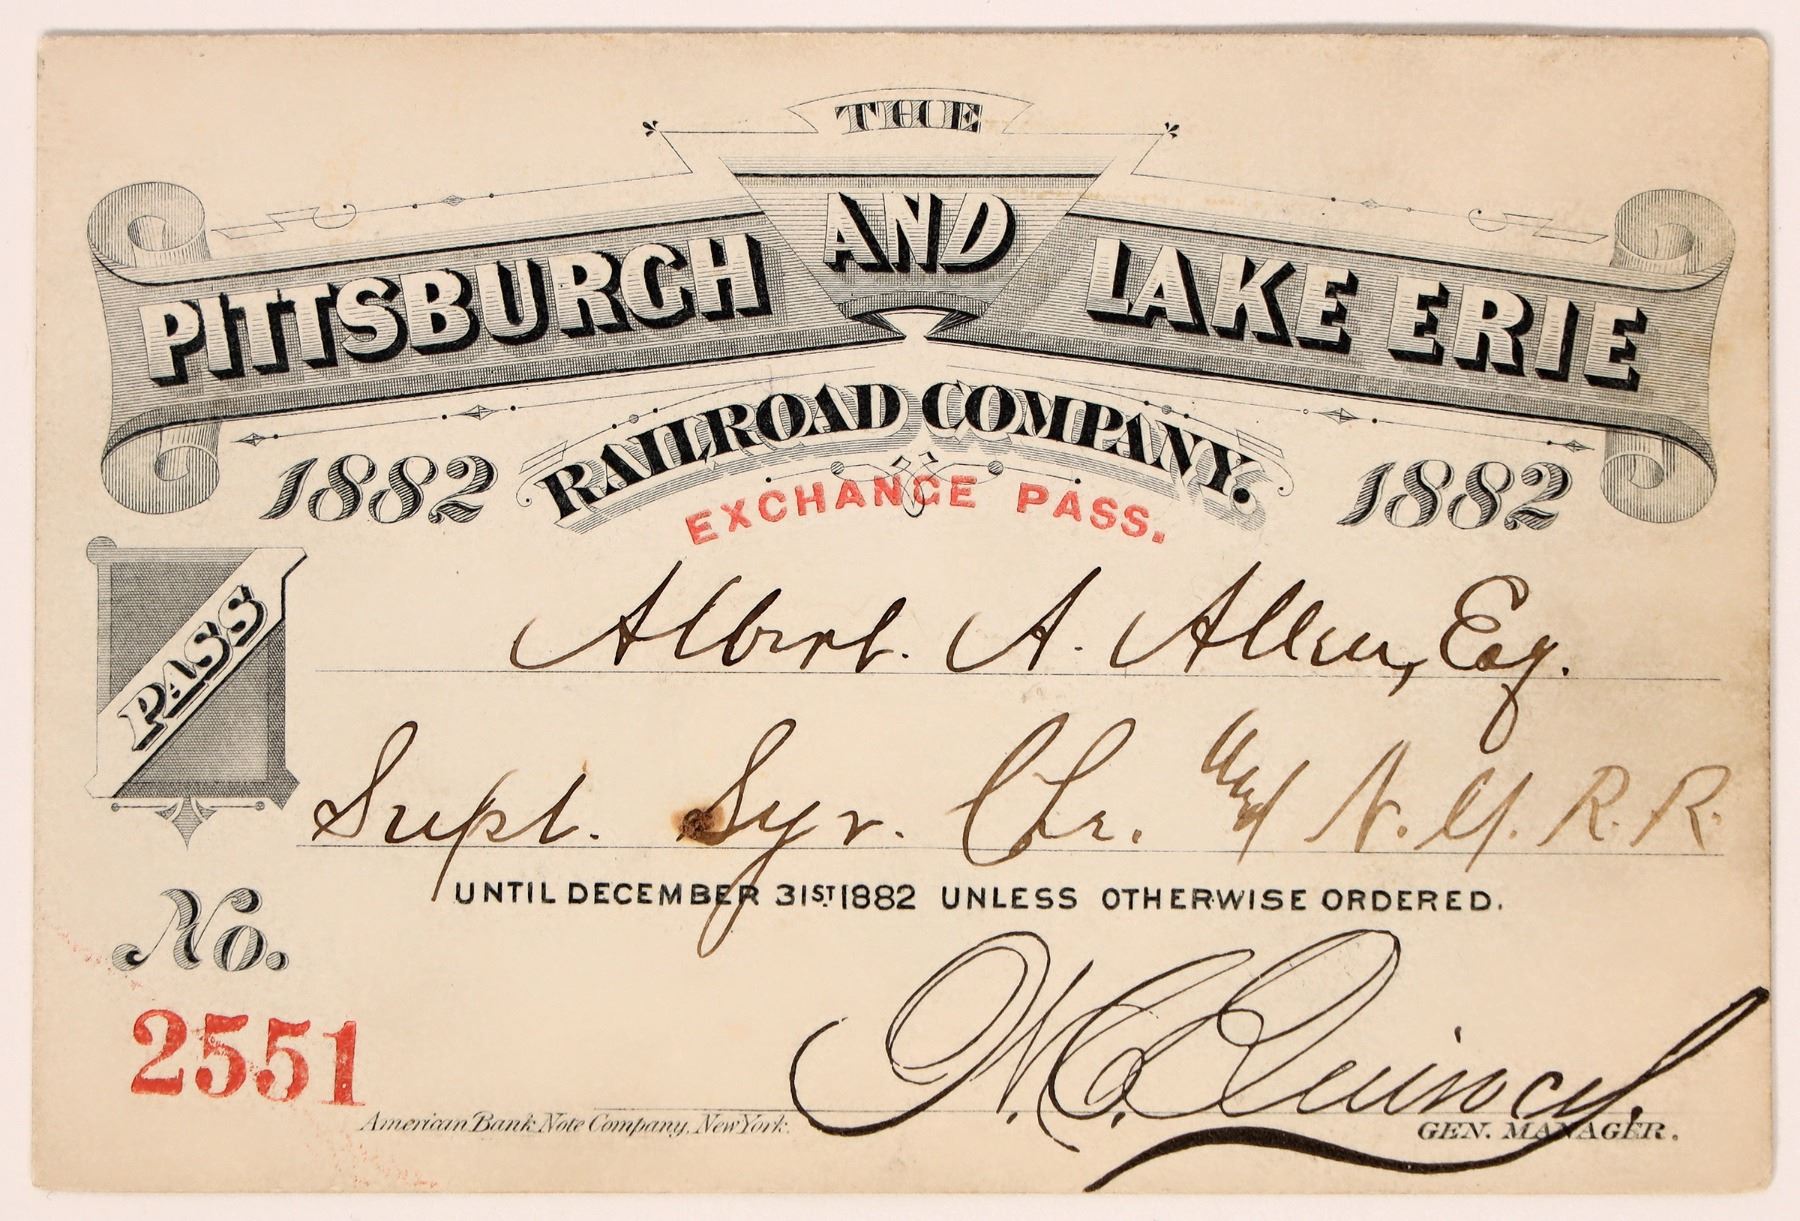 THE
PITTSBURGH AND LAKE ERIE
RAILROAD COMPANY.
1882 1882
EXCHANGE PASS.
PASS
Albert. A. Allen, Esq.
Supt. Syr. Che. and N. Y. R. R.
UNTIL DECEMBER 31ST 1882 UNLESS OTHERWISE ORDERED.
No.
2551
W. C. Quincy.
American Bank Note Company, New York.
GEN. MANAGER.